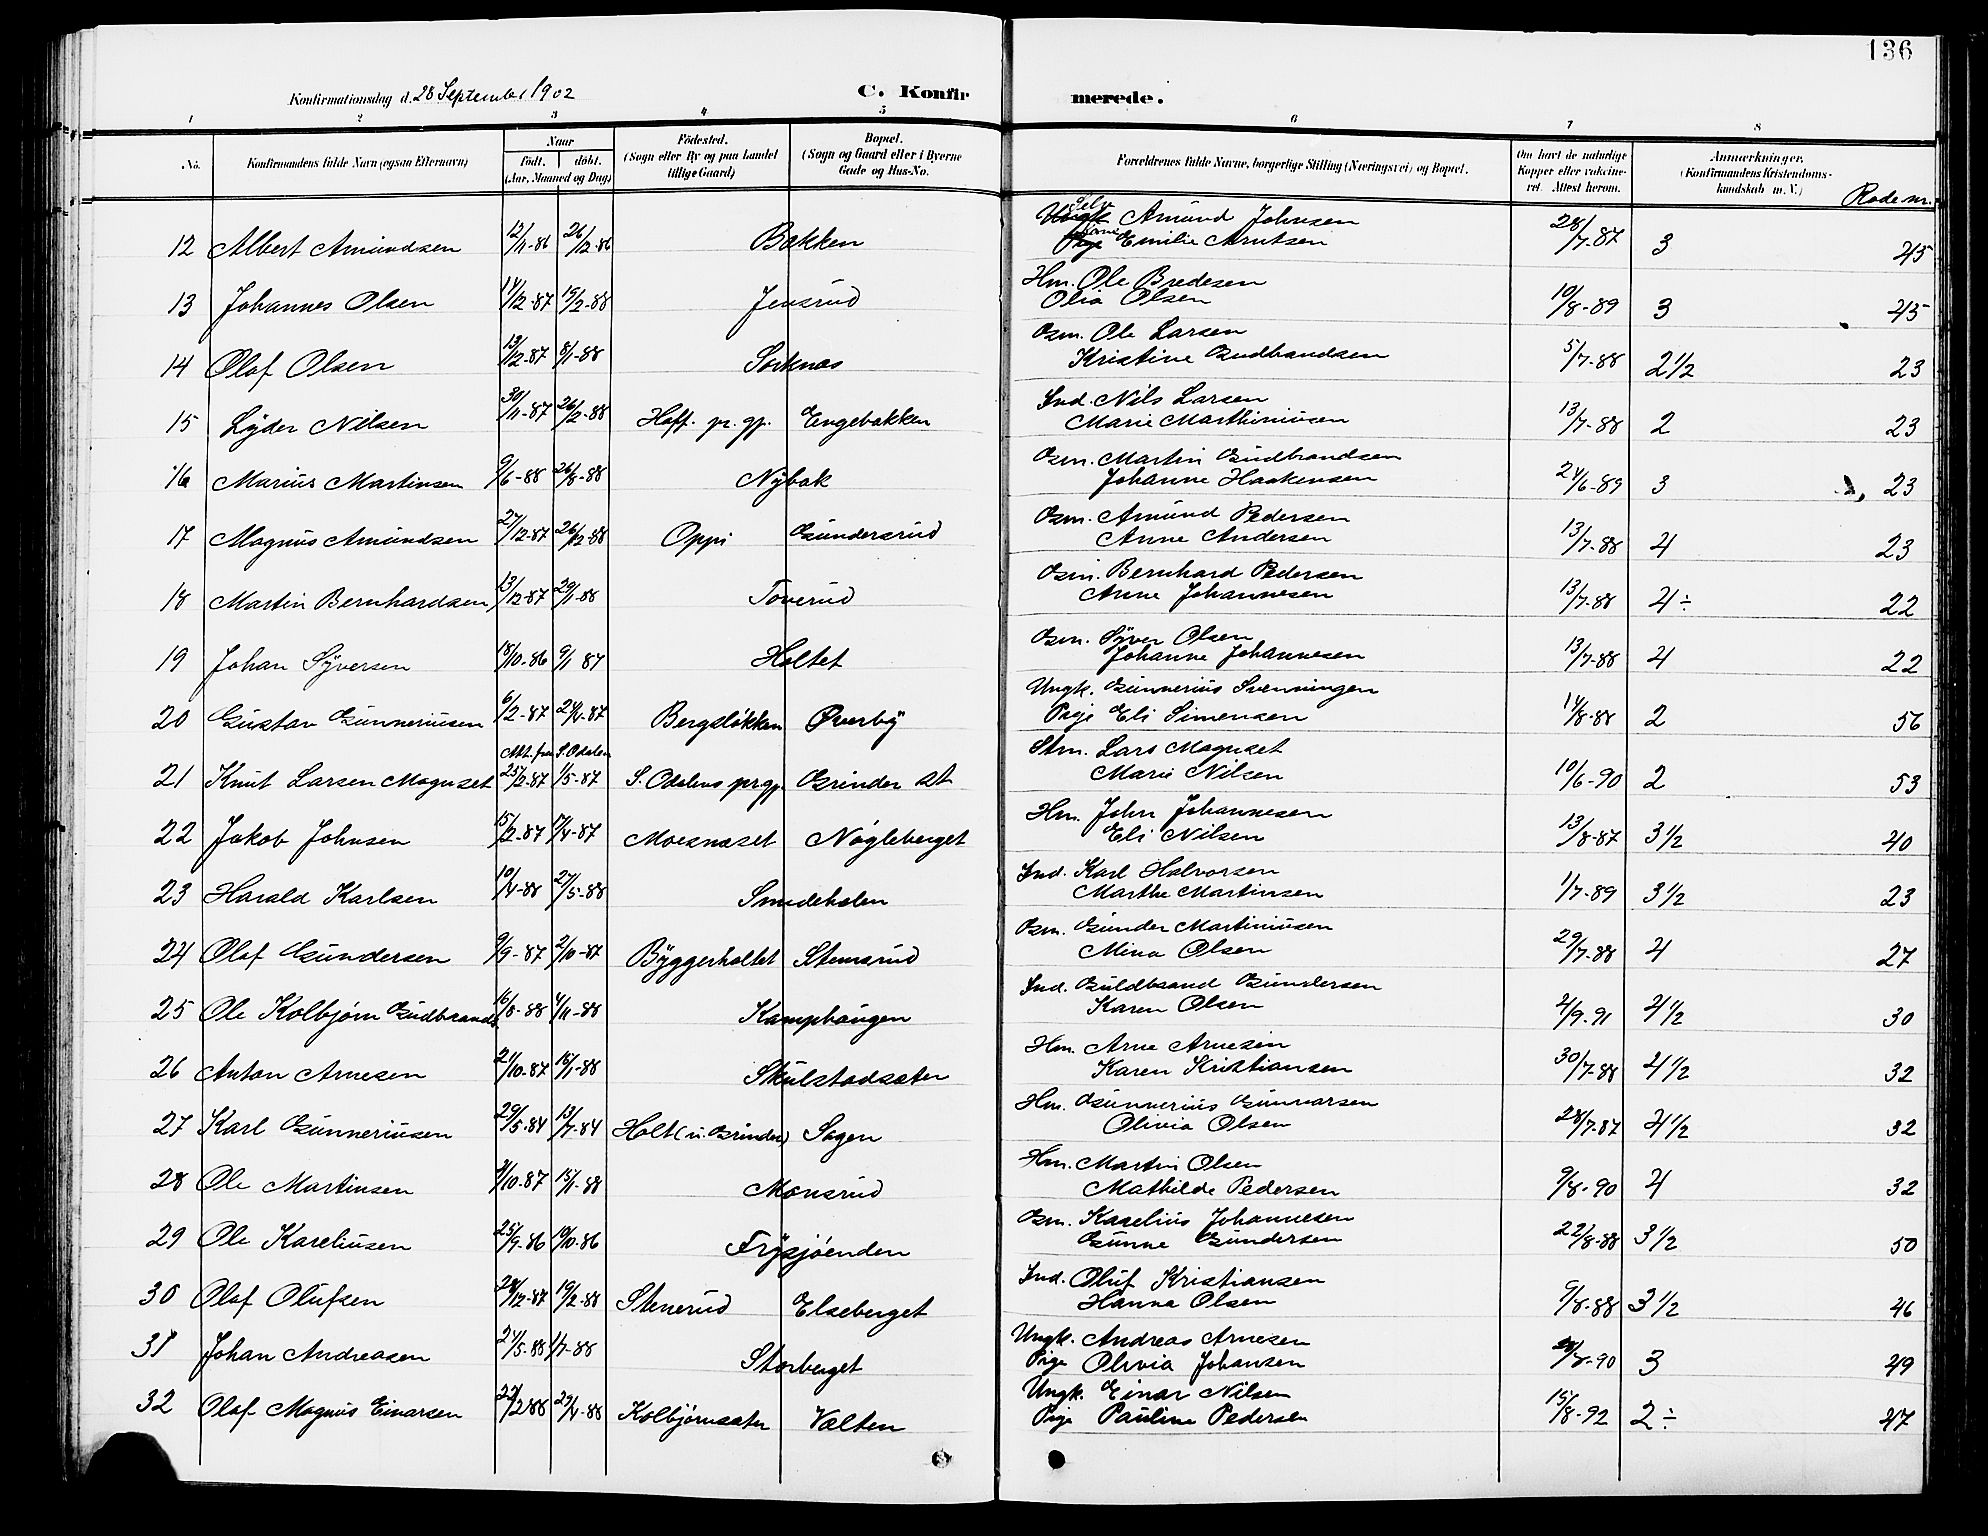 136
Konfirmationsdag d. 28 September 1902 C. Konfirmerede.
1 2 3 4 5 6 7 8
No. Konfirmandens fulde Navn (ogsaa Efternavn) Naar födt. döbt. (Aar, Maaned og Dag) Födested. (Sogn eller By og paa Landet tillige Gaard) Bopæl. (Sogn og Gaard eller i Byerne Gade og Hus-No. Forældrenes fulde Navne, borgerlige Stilling (Næringsvei) og Bopæl. Om havt de naturlige Kopper eller vaccineret. Attest herom. Anmærkninger. (Konfirmandens Kristendomskundskab m. V.) Rode nr.
12 Albert Amundsen 12/11-86 26/12-86 Bakken Selv Amund Johnsen
Emilie Arntsen 28/7-87 3 45
13 Johannes Olsen 14/12-87 19/2-88 Jensrud Hm. Ole Bredesen
Olia Olsen 10/8-89 3 45
14 Olaf Olsen 13/12-87 8/1-88 Sorknæs Gsm. Ole Larsen
Kristine Gudbrandsen 5/7-88 2 1/2 23
15 Lyder Nilsen 30/11-87 26/2-88 Hoff. pr. gj. Engebakken Ind. Nils Larsen
Marie Marthiniusen 13/7-88 2 23
16 Marius Martinsen 9/6-88 26/8-88 Nybak Gsm. Martin Gudbrandsen
Johanne Haakensen 24/6-89 3 23
17 Magnus Amundsen 27/12-87 26/12-88 Oppi Gundersrud Gsm. Amund Pedersen
Anne Andersen 13/7-88 4 23
18 Martin Bernhardsen 13/12-87 29/1-88 Toverud Gsm. Bernhard Pedersen
Anne Johannesen 13/7-88 4÷ 22
19 Johan Syversen 18/10-86 9/1 87 Holtet Gsm. Syver Olsen
Johanne Johannesen 13/7-88 4 22
20 Gustav Gunneriusen 6/2-87 24/4-87 Bergsløkken Øverby Ungk. Gunnerius Svenningen
Pige Eli Simensen 14/8-88 2 56
Att. fra S. Odalen
21 Knut Larsen Magnset 25/2-87 1/5-87 S. Odalens prgj. Grinder st. Stm. Lars Magnset
Marie Nilsen 10/6-90 2 53
22 Jakob Johnsen 15/2-87 17/4-87 Moesnæset Nøgleberget Hm. John Johannesen
Eli Nilsen 13/8-87 3 1/2 40
23 Harald Karlsen 10/4-88 27/5-88 Smedeholen Ind. Karl Halvorsen
Marthe Martinsen 1/7-89 3 1/2 23
24 Olaf Gundersen 9/9-87 2/10-87 Byggerholtet Stemsrud Gsm. Gunder Martiniusen
Mina Olsen 29/7-88 4 27
25 Ole Kolbjørn Gudbrands. 16/8-88 4/11-88 Kamphaugen Ind. Guldbrand Gundersen
Karen Olsen 4/9-91 4 1/2 30
26 Anton Arnesen 21/10-87 15/1-88 Skulstadsæter Hm. Arne Arnesen
Karen Kristiansen 30/7-88 4 1/2 32
27 Karl Gunneriusen 29/5-84 13/7-84 Holt (u. Grinder) Sagen Hm. Gunnerius Gunnarsen
Olivia Olsen 28/7-87 4 1/2 32
28 Ole Martinsen 9/10-87 15/1-88 Monsrud Hm. Martin Olsen
Mathilde Pedersen 9/8-90 4 32
29 Ole Kareliusen 25/9-86 10/10-86 Frysjøenden Gsm. Karelius Johannesen
Gunne Gundersen 22/8-88 3 1/2 50
30 Olaf Olufsen 28/12-87 19/2-88 Stenerud Elseberget Ind. Oluf Kristiansen
Hanna Olsen 9/8-88 3 1/2 46
31 Johan Andreasen 24/5-88 1/7-88 Storberget Ungk. Andreas Arnesen
Pige Olivia Johansen 3 49
32 Olaf Magnus Einarsen 22/2-88 29/4-88 Kolbjørnsæter Vælten Ungk. Einar Nilsen
Pige Pauline Pedersen 15/8-92 2÷ 47